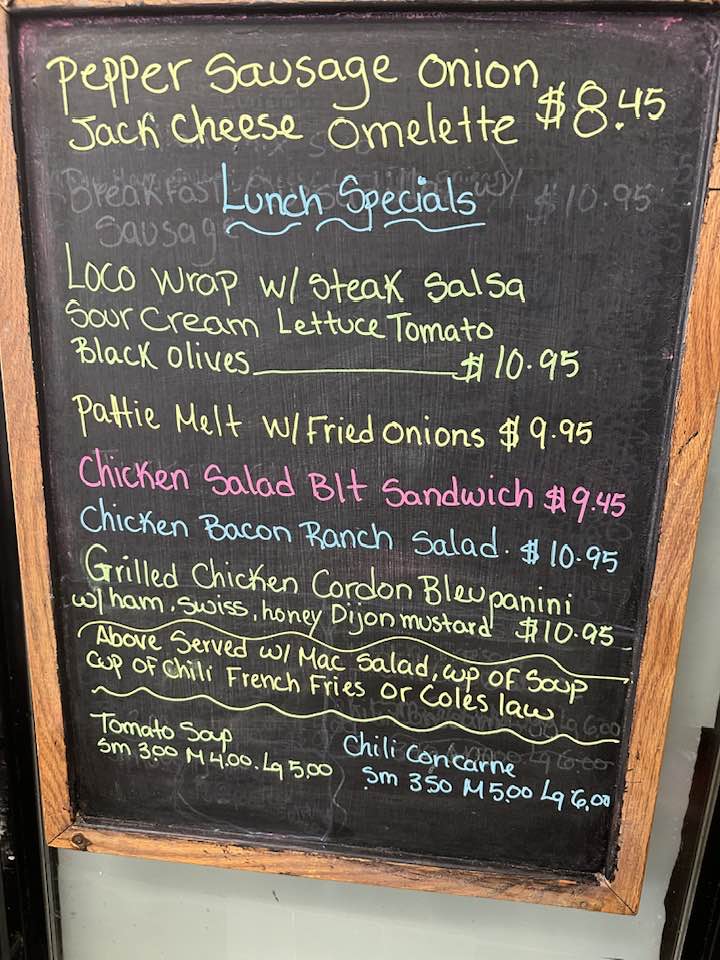 Pepper Sausage Onion
Jack Cheese Omelette $8.45
Breakfast
Sausage
$10.95
Lunch Specials
Loco Wrap w/ Steak Salsa
Sour Cream Lettuce Tomato
Black Olives $10.95
Pattie Melt w/ Fried Onions $9.95
Chicken Salad Blt Sandwich $9.45
Chicken Bacon Ranch Salad. $10.95
Grilled Chicken Cordon Bleu panini
w/ ham, Swiss, honey Dijon mustard $10.95
Above Served w/ Mac Salad, cup of Soup
cup of Chili French Fries or Coles law
Tomato Soup
Sm 3.00 M 4.00. Lg 5.00
Chili Concarne
Sm 350 M 5.00 Lg 6.00